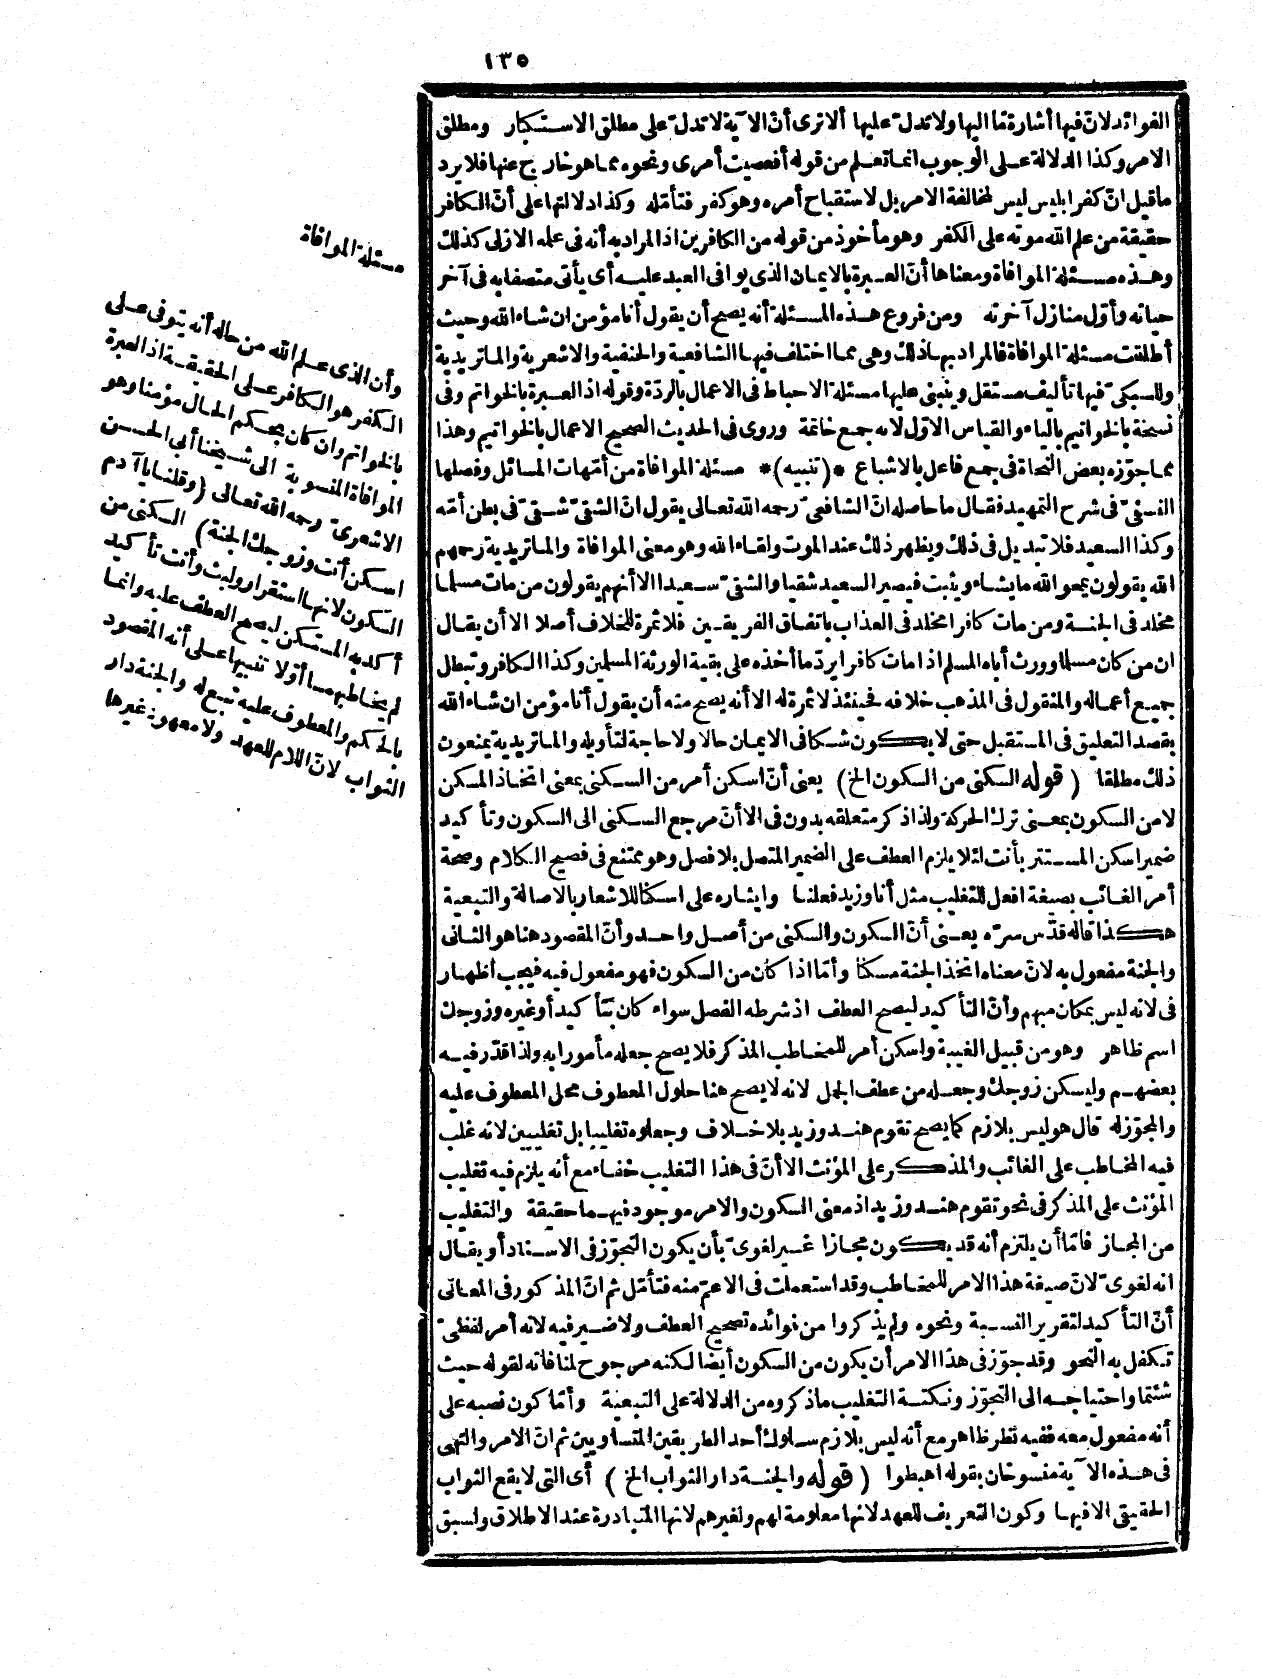 ١٣٥
الفوائد لان فيها أشارة ما اليها ولا تدل عليها ألا ترى أنّ الآية لا تدل على مطلق الاستكبار ومطلق
الامر وكذا الدلالة على الوجوب انما تعلم من قوله أفعصيت أمرى ونحوه مما هو خارج عنها فلا يرد
ما قيل انّ كفر ابليس ليس لمخالفة الامر بل لاستقباح أمره وهو كفر فتأمّله وكذا دلالتها على أنّ الكافر
حقيقة من علم الله موته على الكفر وهو مأخوذ من قوله من الكافرين اذ المراد به أنه فى علمه الازلى كذلك
وهذه مسئلة الموافاة ومعناها أنّ العبرة بالايمان الذى يوافى العبد عليه أى يأتى متصفا به فى آخر
حياته وأوّل منازل آخرته ومن فروع هذه المسئلة أنه يصح أن يقول أنا مؤمن ان شاء الله وحيث
أطلقت مسئلة الموافاة فالمراد بها ذلك وهى مما اختلف فيها الشافعية والحنفية والاشعرية والماتريدية
وللسبكىّ فيها تأليف مستقل وينبنى عليها مسئلة الاحباط فى الاعمال بالردّة وقوله اذ العبرة بالخواتم وفى
نسخة بالخواتيم بالياء والقياس الاوّل لانه جمع خاتمة وروى فى الحديث الصحيح الاعمال بالخواتيم وهذا
مما جوّزه بعض النحاة فى جمع فاعل بالاشباع *(تنبيه)* مسئلة الموافاة من أمّهات المسائل وفصلها
النسفىّ فى شرح التمهيد فقال ما حاصله انّ الشافعىّ رحمه الله تعالى يقول انّ الشقىّ شقىّ فى بطن أمّه
وكذا السعيد فلا تبديل فى ذلك ويظهر ذلك عند الموت ولقاء الله وهو معنى الموافاة والماتريدية رحمهم
الله يقولون يمحو الله ما يشاء ويثبت فيصير السعيد شقيا والشقىّ سعيدا الا أنهم يقولون من مات مسلما
مخلد فى الجنة ومن مات كافرا مخلد فى العذاب باتفاق الفريقين فلا ثمرة للخلاف أصلا الا أن يقال
ان من كان مسلما وورث أباه المسلم اذا مات كافرا يردّ ما أخذه على بقية الورثة المسلمين وكذا الكافر وتبطل
جميع أعماله والمنقول فى المذهب خلافه فحينئذ لا ثمرة له الا أنه يصح منه أن يقول أنا مؤمن ان شاء الله
بقصد التعليق فى المستقبل حتى لا يكون شكا فى الايمان حالا ولا حاجة لتأويله والماتريدية يمنعون
ذلك مطلقا (قوله السكنى من السكون الخ) يعنى أنّ اسكن أمر من السكنى بمعنى اتخاذ المسكن
لا من السكون بمعنى ترك الحركة ولذا ذكر متعلقه بدون فى الا أنّ مرجع السكنى الى السكون وتأكيد
ضمير اسكن المستتر بأنت لئلا يلزم العطف على الضمير المتصل بلا فصل وهو ممتنع فى فصيح الكلام وصحة
أمر الغائب بصيغة افعل للتغليب مثل أنا وزيد فعلنا وايثاره على اسكنا للاشعار بالاصالة والتبعية
هكذا قاله قدّس سرّه يعنى أنّ السكون والسكنى من أصل واحد وأنّ المقصود هنا هو الثانى
والجنة مفعول به لانّ معناه اتخذ الجنة مسكنا وأمّا اذا كان من السكون فهو مفعول فيه فيجب اظهار
فى لانه ليس بمكان مبهم وأنّ التأكيد ليصح العطف اذ شرطه الفصل سواء كان بتأكيد أو غيره وزوجك
اسم ظاهر وهو من قبيل الغيبة واسكن أمر للمخاطب المذكر فلا يصح جعله مأمورا به ولذا قدّر فيه
بعضهم وليسكن زوجك وجعله من عطف الجمل لانه لا يصح هنا حلول المعطوف محل المعطوف عليه
والمجوّز له قال هو ليس بلازم كما يصح تقوم هند وزيد بلا خلاف وجعلوه تغليبا بل تغليبين لانه غلب
فيه المخاطب على الغائب والمذكر على المؤنث الا أنّ فى هذا التغليب خفاء مع أنه يلزم فيه تغليب
المؤنث على المذكر فى نحو تقوم هند وزيد اذ معنى السكون والامر موجود فيهما حقيقة والتغليب
من المجاز فامّا أن يلتزم أنه قد يكون مجازا غير لغوىّ بأن يكون التجوّز فى الاسناد أو يقال
انه لغوىّ لانّ صيغة هذا الامر للمخاطب وقد استعملت فى الاعمّ منه فتأمّل ثم انّ المذكور فى المعانى
أنّ التأكيد لتقرير النسبة ونحوه ولم يذكروا من فوائده تصحيح العطف ولا ضير فيه لانه أمر لفظىّ
تكفل به النحو وقد جوّز فى هذا الامر أن يكون من السكون أيضا لكنه مرجوح لمنافاته لقوله حيث
شئتما واحتياجه الى التجوّز ونكتة التغليب ما ذكروه من الدلالة على التبعية وأمّا كون نصبه على
أنه مفعول معه ففيه نظر ظاهر مع أنه ليس بلازم سلوك أحد الطريقين المتساويين ثم انّ الامر والنهى
فى هذه الآية منسوخان بقوله اهبطوا (قوله والجنة دار الثواب الخ) أى التى لا يقع الثواب
الحقيقى الا فيها وكون التعريف للعهد لانها معلومة لهم ولغيرهم لانها المتبادرة عند الاطلاق ولسبق
مسئلة الموافاة
وأن الذى علم الله من حاله أنه يتوفى على
الكفر هو الكافر على الحقيقة اذ العبرة
بالخواتم وان كان بحكم الحال مؤمنا وهو
الموافاة المنسوبة الى شيخنا أبى الحسن
الاشعرىّ رحمه الله تعالى (وقلنا يا آدم
اسكن أنت وزوجك الجنة) السكنى من
السكون لانها استقرار ولبث وأنت تأكيد
أكد به المستكن ليصح العطف عليه وانما
لم يخاطبهما أوّلا تنبيها على أنه المقصود
بالحكم والمعطوف عليه تبع له والجنة دار
الثواب لانّ اللام للعهد ولا معهود غيرها